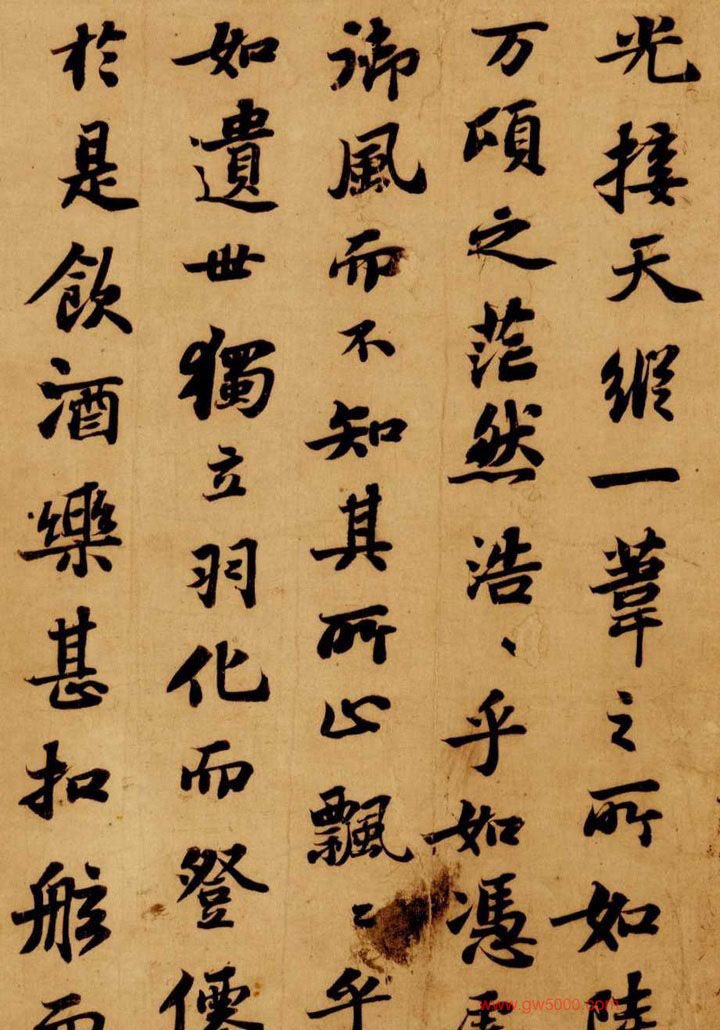 光接天縱一葦之所如
万頃之茫然浩、乎如憑
御風而不知其所止飄〻乎
如遺世獨立羽化而登僊
於是飲酒樂甚扣舷而
www.gw5000.com